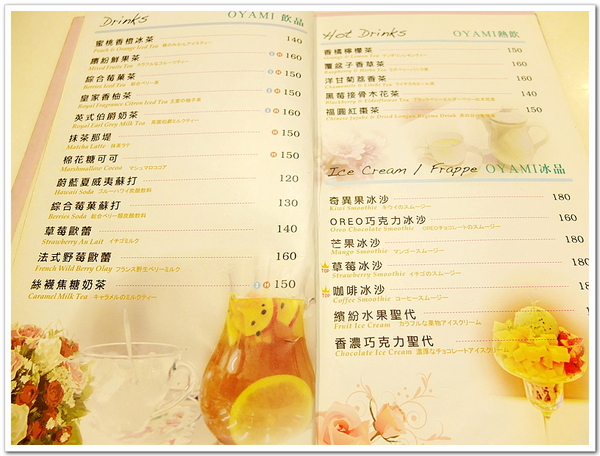 Drinks OYAMI 飲品
蜜桃香橙冰茶 140
Peach & Orange Iced Tea
繽紛鮮果茶 160
Mixed Fruits Tea カラフルなフルーツティー
綜合莓菓茶 150
Berries Iced Tea 総合ベリー茶
皇家香柚茶 150
Royal Fragrance Citron Iced Tea 王室の柚子茶
英式伯爵奶茶 160
Royal Earl Grey Milk Tea 英国伯爵ミルクティー
抹茶那堤 150
Matcha Latte 抹茶ラテ
棉花糖可可 150
Marshmallow Cocoa マシュマロココア
蔚藍夏威夷蘇打 120
Hawaii Soda ブルーハワイ炭酸飲料
綜合莓果蘇打 130
Berries Soda 総合ベリー類炭酸飲料
草莓歐蕾 140
Strawberry Au Lait イチゴミルク
法式野莓歐蕾 160
French Wild Berry Olay フランス野生ベリーミルク
絲襪焦糖奶茶 150
Caramel Milk Tea キャラメルのミルクティー
Hot Drinks OYAMI熱飲
香橘檸檬茶 150
覆盆子香草茶 160
洋甘菊荔香茶 150
黑莓接骨木花茶 140
Blackberry & Elderflower Tea
福圓紅棗茶 150
Chinese Jujube & Dried Longan Regimen Drink
Ice Cream / Frappe OYAMI冰品
奇異果冰沙 180
Kiwi Smoothie キウイのスムージー
OREO巧克力冰沙 160
Oreo Chocolate Smoothie OREOチョコレートのスムージー
芒果冰沙 180
Mango Smoothie マンゴースムージー
TOP 草莓冰沙 180
Strawberry Smoothie イチゴのスムージー
TOP 咖啡冰沙
Coffee Smoothie コーヒースムージー
繽紛水果聖代
Fruit Ice Cream カラフルな果物アイスクリーム
香濃巧克力聖代
Chocolate Ice Cream 濃厚なチョコレートアイスクリーム